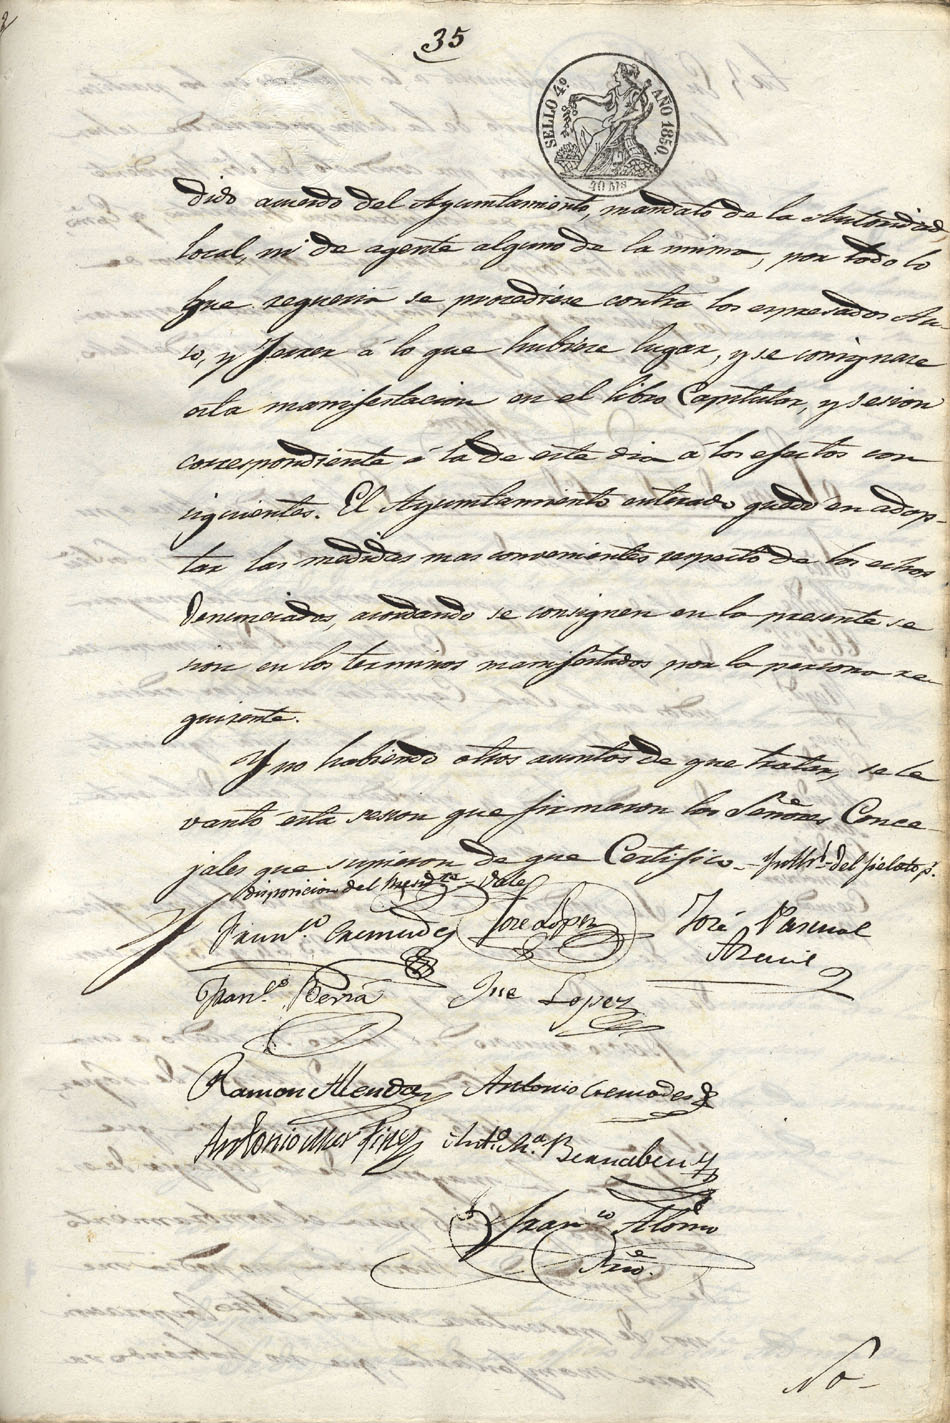 35
SELLO 4º AÑO 1850.
40 MS
dido acuerdo del Ayuntamiento, mandato de la Autoridad
local, ni de agente alguno de la misma, por todo lo
que requeria se procediese contra los expresados
so, y Ferrer á lo que hubiere lugar, y se consignase
esta manifestacion en el libro Capitular, y sesion
correspondiente á la de este dia á los efectos con
siguientes. El Ayuntamiento enterado quedó en adop-
tar las medidas mas convenientes respecto de los echos
denunciados, acordando se consignen en la presente se
sion en los terminos manifestados por la persona re-
quirente.
Y no habiendo otros asuntos de que tratar, se le
vantó esta sesion que firmaron los Señores Conce-
jales que supieron de que Certifico = del
disposicion del Vale
Franco. Cremades José Lopez José Pascual
Franco. Berná Jose Lopez
Ramon Allenda Antonio Cremades
Antonio Martinez Anto. Ma. Bernabeu
Franco. Alonso
Srio.
No-